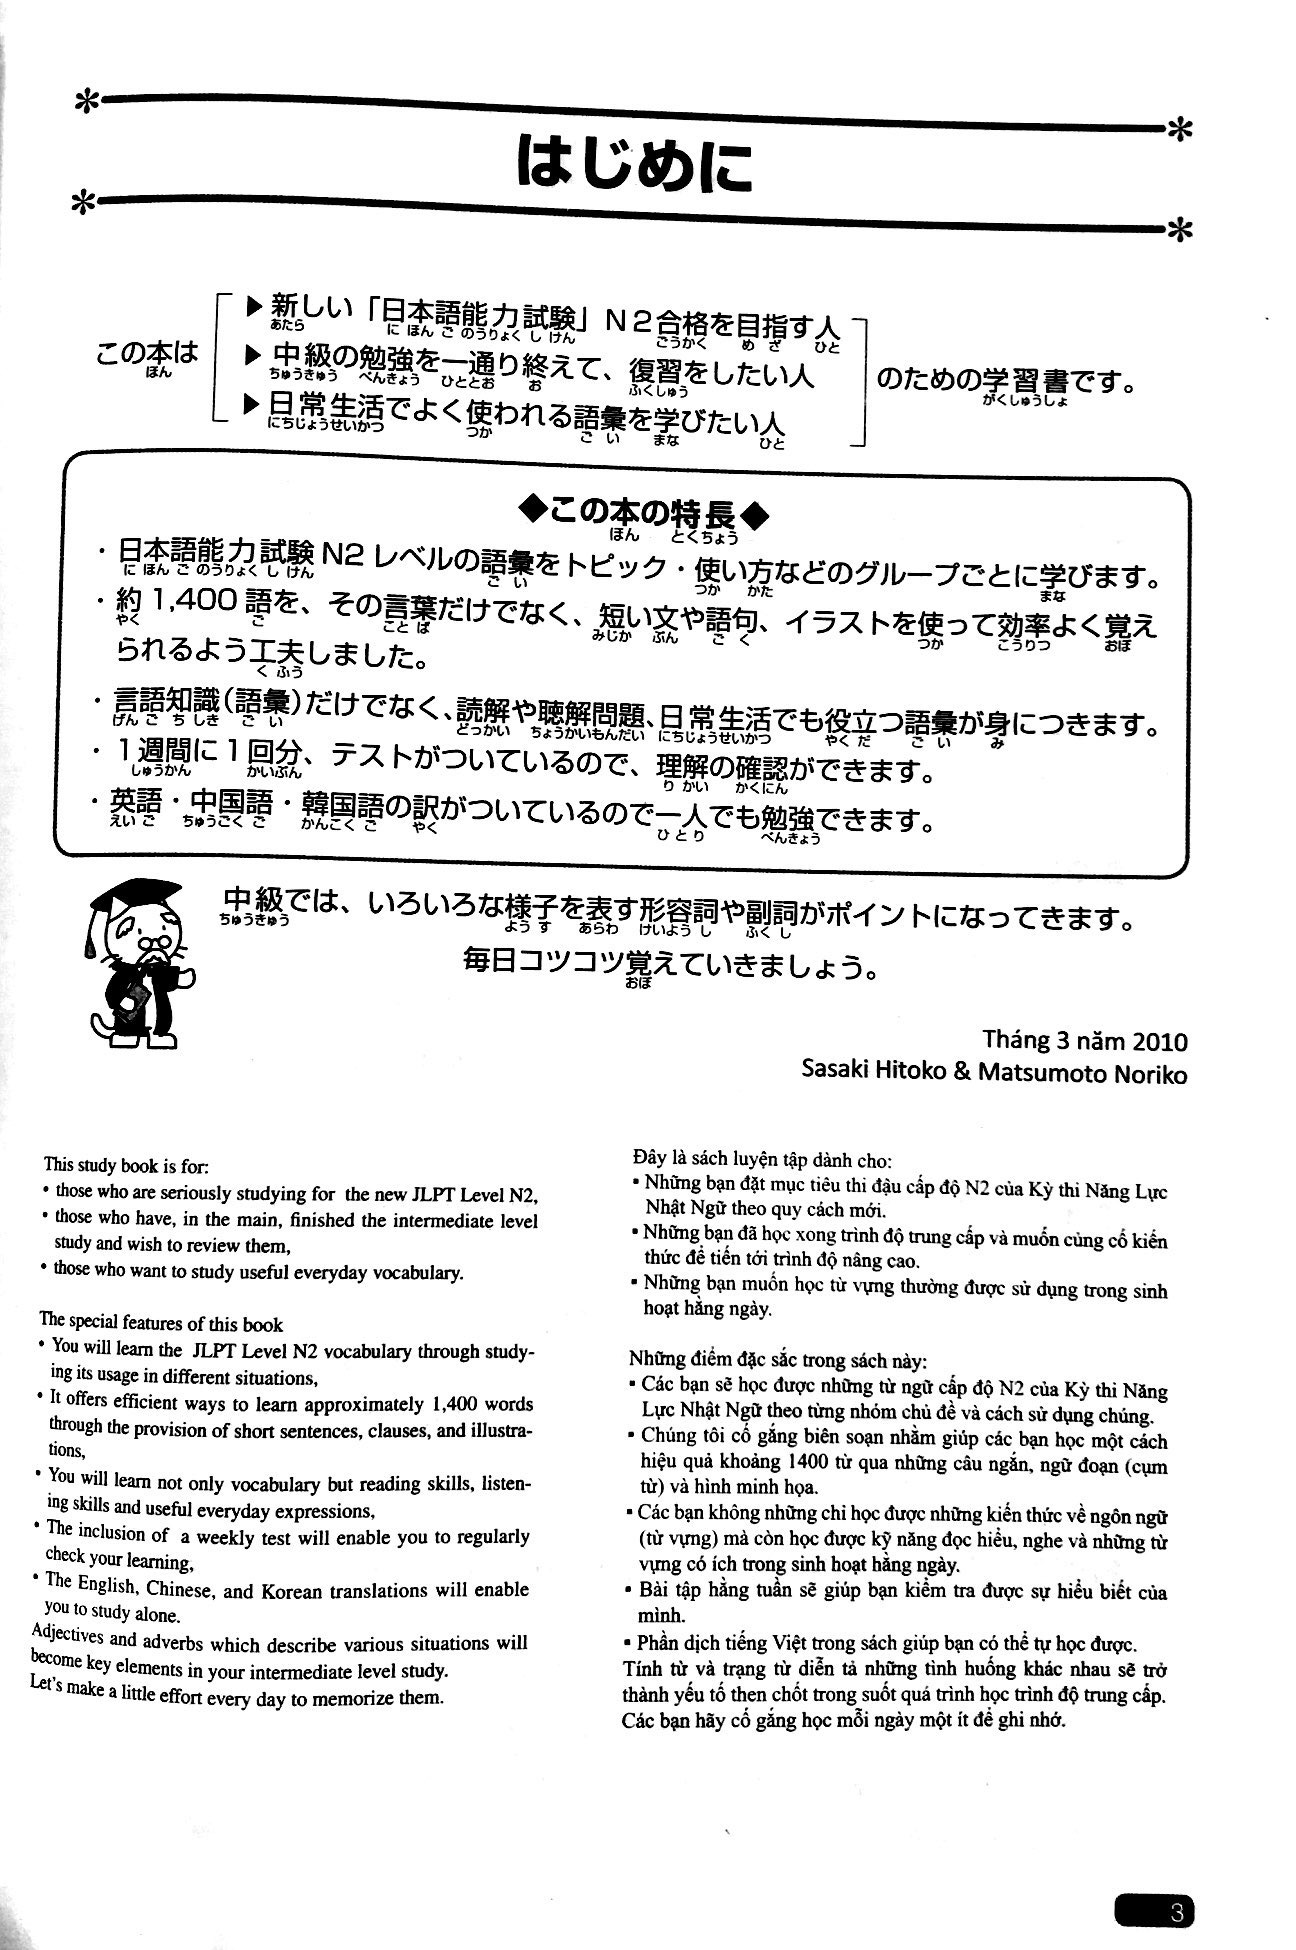 はじめに
この本は
ほん
▶新しい「日本語能力試験」N2合格を目指す人
あたら に ほん ご のうりょく し けん ごうかく め ざ ひと
▶中級の勉強を一通り終えて、復習をしたい人
ちゅうきゅう べんきょう ひととお お ふくしゅう
▶日常生活でよく使われる語彙を学びたい人
にちじょうせいかつ つか ご い まな ひと
のための学習書です。
がくしゅうしょ
◆この本の特長◆
ほん とくちょう
・日本語能力試験N2レベルの語彙をトピック・使い方などのグループごとに学びます。
に ほん ご のうりょく し けん ご い つか かた まな
・約1,400語を、その言葉だけでなく、短い文や語句、イラストを使って効率よく覚え
やく ご こと ば みじか ぶん ご く つか こうりつ おぼ
られるよう工夫しました。
く ふう
・言語知識(語彙)だけでなく、読解や聴解問題、日常生活でも役立つ語彙が身につきます。
げん ご ち しき ご い どっかい ちょうかいもんだい にちじょうせいかつ やく だ ご い み
・1週間に1回分、テストがついているので、理解の確認ができます。
しゅうかん かいぶん り かい かくにん
・英語・中国語・韓国語の訳がついているので一人でも勉強できます。
えい ご ちゅうごく ご かんこく ご やく ひとり べんきょう
中級では、いろいろな様子を表す形容詞や副詞がポイントになってきます。
ちゅうきゅう よう す あらわ けいよう し ふく し
毎日コツコツ覚えていきましょう。
おぼ
Tháng 3 năm 2010
Sasaki Hitoko & Matsumoto Noriko
This study book is for:
• those who are seriously studying for the new JLPT Level N2,
• those who have, in the main, finished the intermediate level
study and wish to review them,
• those who want to study useful everyday vocabulary.
The special features of this book
• You will learn the JLPT Level N2 vocabulary through study-
ing its usage in different situations,
• It offers efficient ways to learn approximately 1,400 words
through the provision of short sentences, clauses, and illustra-
tions,
• You will learn not only vocabulary but reading skills, listen-
ing skills and useful everyday expressions,
• The inclusion of a weekly test will enable you to regularly
check your learning,
• The English, Chinese, and Korean translations will enable
you to study alone.
Adjectives and adverbs which describe various situations will
become key elements in your intermediate level study.
Let's make a little effort every day to memorize them.
Đây là sách luyện tập dành cho:
▪ Những bạn đặt mục tiêu thi đậu cấp độ N2 của Kỳ thi Năng Lực
Nhật Ngữ theo quy cách mới.
▪ Những bạn đã học xong trình độ trung cấp và muốn củng cố kiến
thức để tiến tới trình độ nâng cao.
▪ Những bạn muốn học từ vựng thường được sử dụng trong sinh
hoạt hằng ngày.
Những điểm đặc sắc trong sách này:
▪ Các bạn sẽ học được những từ ngữ cấp độ N2 của Kỳ thi Năng
Lực Nhật Ngữ theo từng nhóm chủ đề và cách sử dụng chúng.
▪ Chúng tôi cố gắng biên soạn nhằm giúp các bạn học một cách
hiệu quả khoảng 1400 từ qua những câu ngắn, ngữ đoạn (cụm
từ) và hình minh họa.
▪ Các bạn không những chỉ học được những kiến thức về ngôn ngữ
(từ vựng) mà còn học được kỹ năng đọc hiểu, nghe và những từ
vựng có ích trong sinh hoạt hằng ngày.
▪ Bài tập hằng tuần sẽ giúp bạn kiểm tra được sự hiểu biết của
mình.
▪ Phần dịch tiếng Việt trong sách giúp bạn có thể tự học được.
Tính từ và trạng từ diễn tả những tình huống khác nhau sẽ trở
thành yếu tố then chốt trong suốt quá trình học trình độ trung cấp.
Các bạn hãy cố gắng học mỗi ngày một ít để ghi nhớ.
3